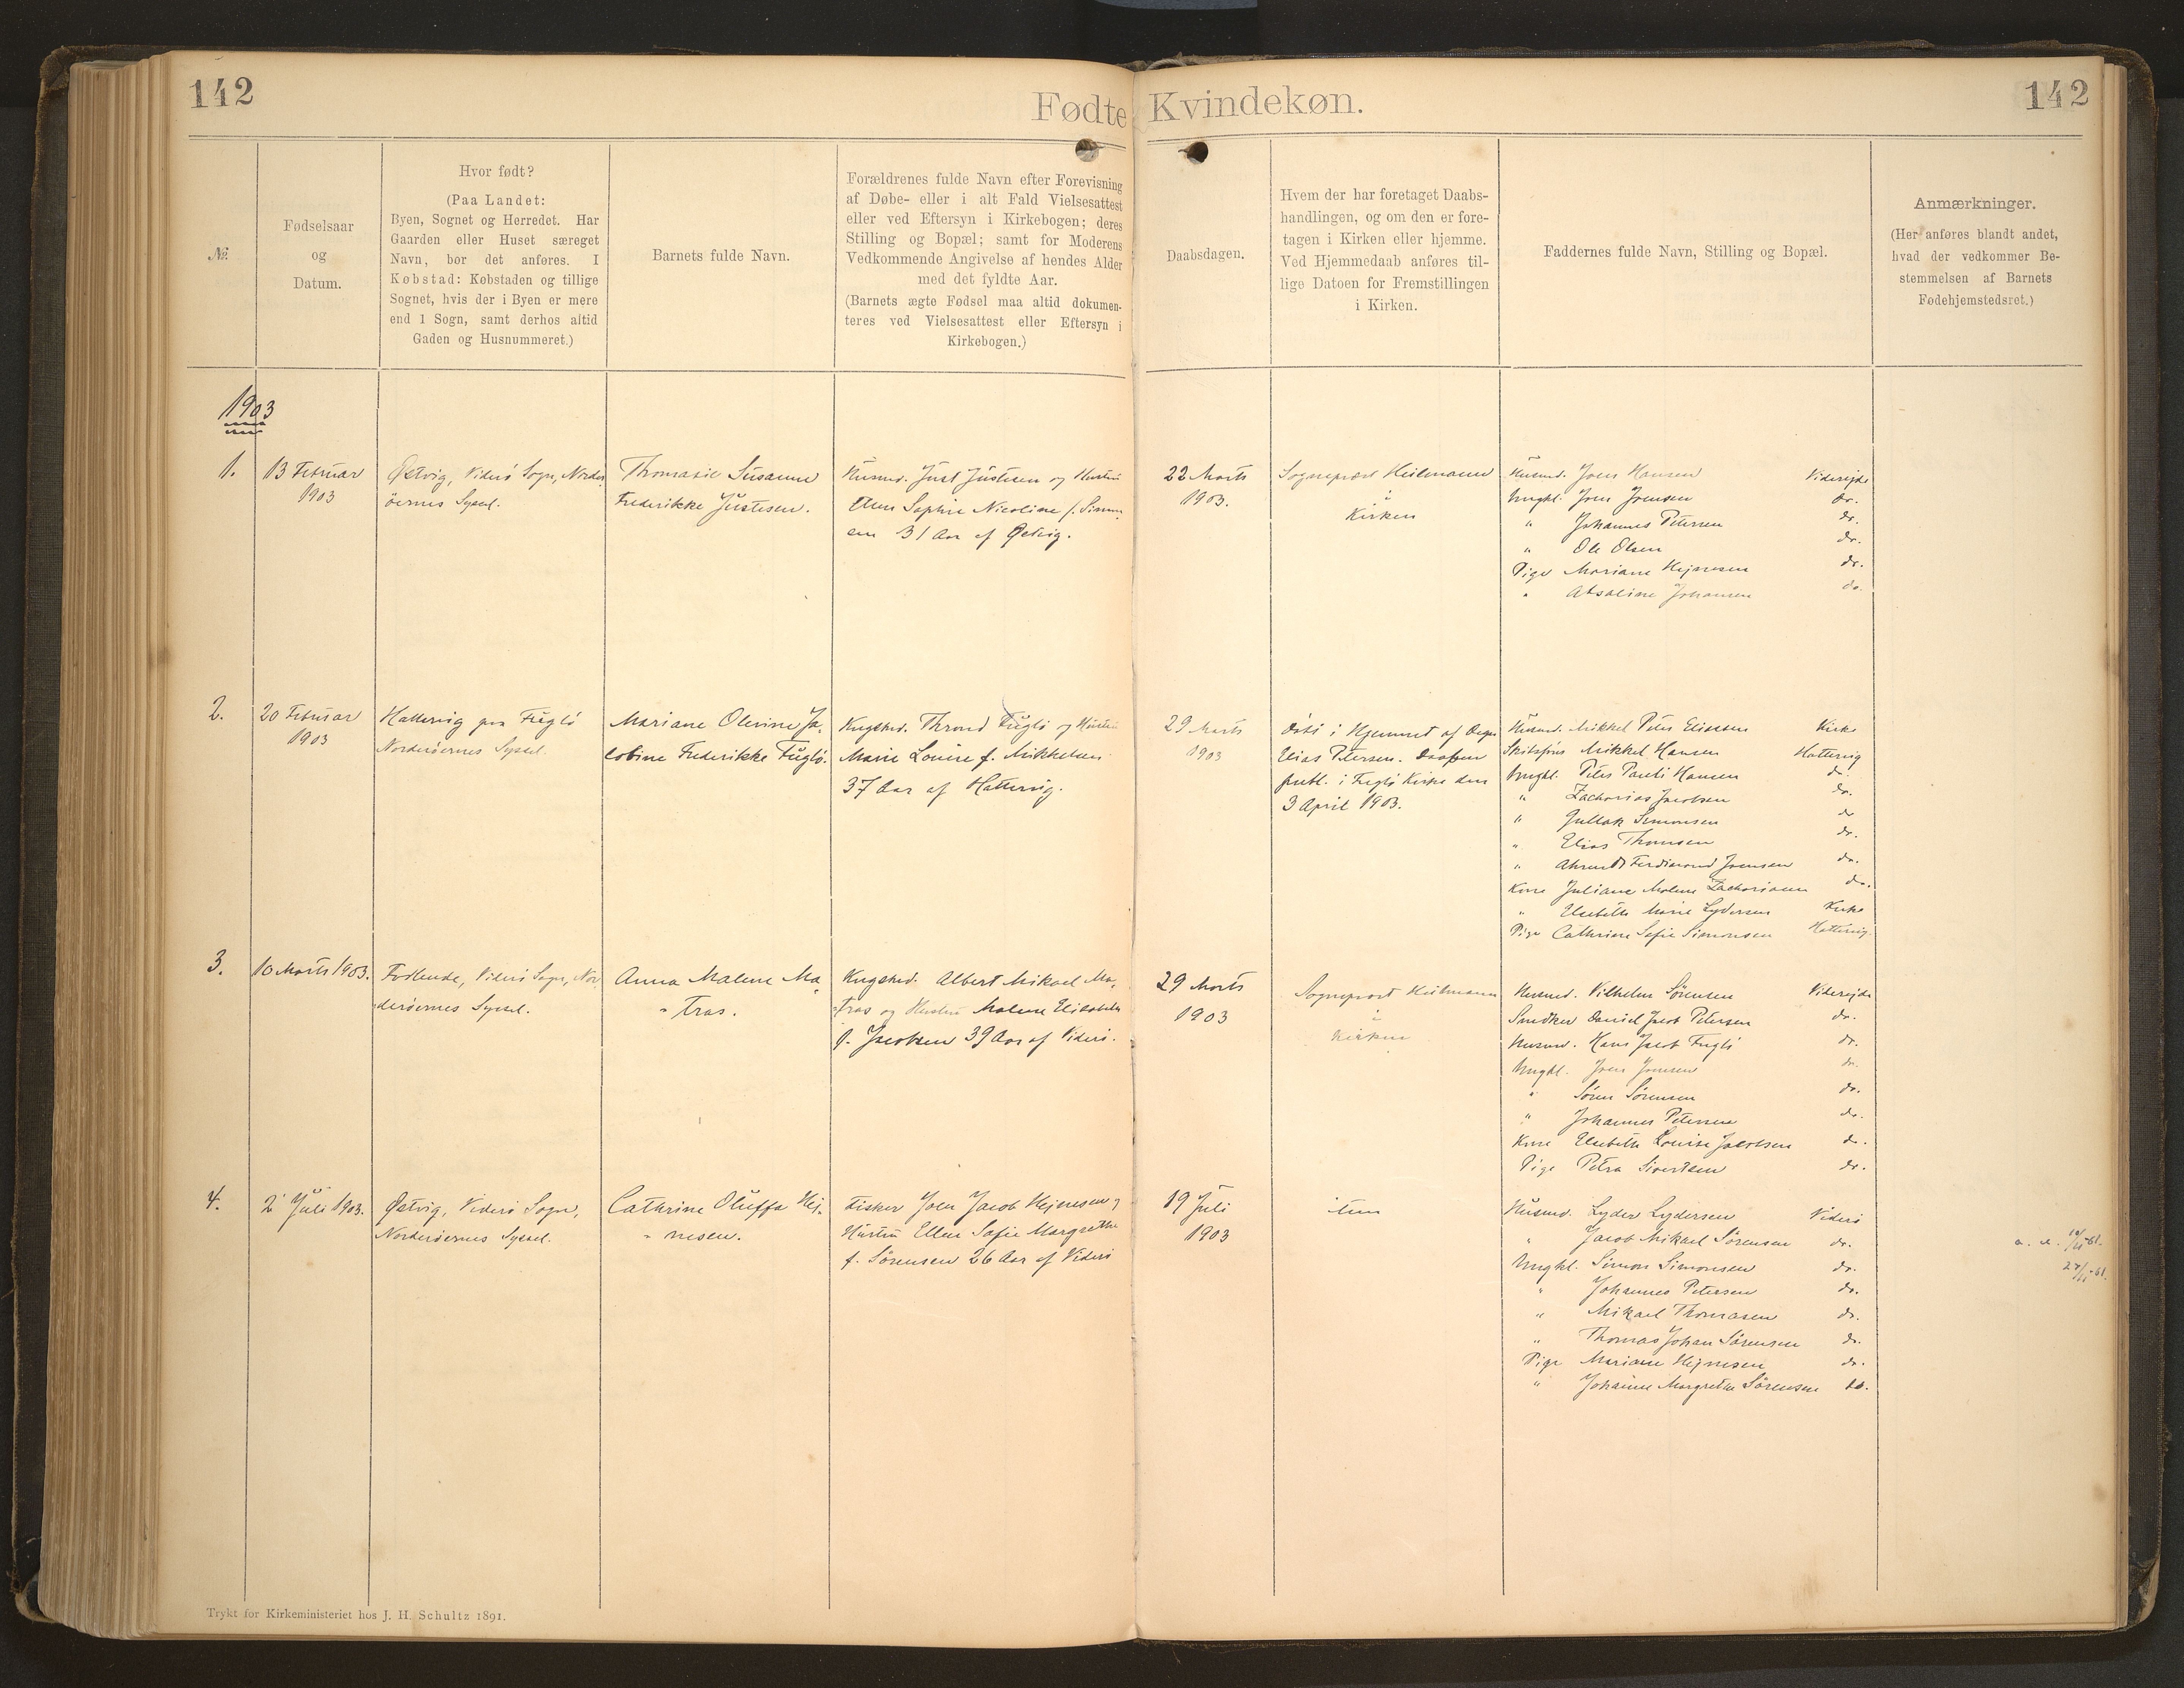 142
Fødte Kvindekøn.
142
№
Fødselsaar
og
Datum.
Hvor født?
(Paa Landet:
Byen, Sognet og Herredet. Har
Gaarden eller Huset særeget
Navn, bor det anføres. I
Købstad: Købstaden og tillige
Sognet, hvis der i Byen er mere
end 1 Sogn, samt derhos altid
Gaden og Husnummeret.)
Barnets fulde Navn.
Forældrenes fulde Navn efter Forevisning
af Døbe- eller i alt Fald Vielsesattest
eller ved Eftersyn i Kirkebogen; deres
Stilling og Bopæl; samt for Moderens
Vedkommende Angivelse af hendes Alder
med det fyldte Aar.
(Barnets ægte Fødsel maa altid dokumen-
teres ved Vielsesattest eller Eftersyn i
Kirkebogen.)
Daabsdagen.
Hvem der har foretaget Daabs-
handlingen, og om den er fore-
tagen i Kirken eller hjemme.
Ved Hjemmedaab anføres til-
lige Datoen for Fremstillingen
i Kirken.
Faddernes fulde Navn, Stilling og Bopæl.
Anmærkninger.
(Her anføres blandt andet,
hvad der vedkommer Be-
stemmelsen af Barnets
Fødehjemstedsret.)
1903
1.
13 Februar
1903
Østvig, Viderö Sogn, Norder
öernes Syssel.
Thomasie Susanne
Frederikke Justesen.
Husmd. Just Justesen og Hustru
Ellen Sophie Nicoline f. Simon
sen 31 Aar af Østvig.
22 Marts
1903.
Sognepræst Heilmann
i
Kirken
Husmd. Joen Hansen Viderejde
Ungkl. Joen Joensen do.
" Johannes Petersen do.
" Ole Olsen do.
Pige Mariane Hejnesen do.
" Absaline Johansen do.
2.
20 Februar
1903
Hattervig paa Fuglö
Norderöernes Syssel.
Mariane Olevine Ja-
cobine Frederikke Fuglö.
Kngsbd. Thrond Fuglö og Hustru
Marie Louise f. Mikkelsen
37 Aar af Hattervig.
29 Marts
1903
Döbt i Hjemmet af Degn
Elias Petersen. Daaben
publ. i Fuglö Kirke den
3 April 1903.
Husmd. Mikkel Peter Eliassen Kirke
Mikkel Hansen Hattervig
Ungkl. Peter Pauli Hansen do.
" Zacharias Jacobsen do.
" Gullak Simonsen do
" Elias Thomsen do.
" Ahrendt Ferdinand Joensen do.
Kone Juliane Malene Zachariasen do.
" Elsebeth Marie Lydersen Kirke
Pige Cathrine Sofie Simonsen Hattervig.
3.
10 Marts 1903.
Viderö Sogn, Nor
deröernes Syssel.
Anna Malene Ma-
" tras.
Kngsbd. Albert Mikael Ma-
tras og Hustru Malene Elisabeth
f. Jacobsen 39 Aar af Viderö.
29 Marts
1903
Sognepræst Heilmann
i
Kirken
Husmd. Vilhelm Sörensen Viderejde
Snedker Daniel Jacob Petersen do.
Husmd. Hans Jacob Fuglö do.
Ungkl. Joen Joensen do.
" Sören Sörensen do.
" Johannes Petersen do.
Kone Elsebeth Louise Jacobsen do.
Pige Petra Sivertsen do.
4.
2 Juli 1903.
Østvig, Viderö Sogn,
Norderöernes Syssel.
Cathrine Oluffa Hej-
" nesen.
Fisker Joen Jacob Hejnesen og
Hustru Ellen Sofie Margrethe
f. Sörensen 26 Aar af Viderö
19 Juli
1903
item
Husmd. Lyder Lydersen Viderö
" Jacob Mikael Sörensen do.
Ungkl. Simon Simonsen do.
" Johannes Petersen do.
" Mikael Thomasen do.
" Thomas Johan Sörensen do.
Pige Mariane Hejnesen do.
" Johanne Margrethe Sörensen do.
Trykt for Kirkeministeriet hos J. H. Schultz 1891.